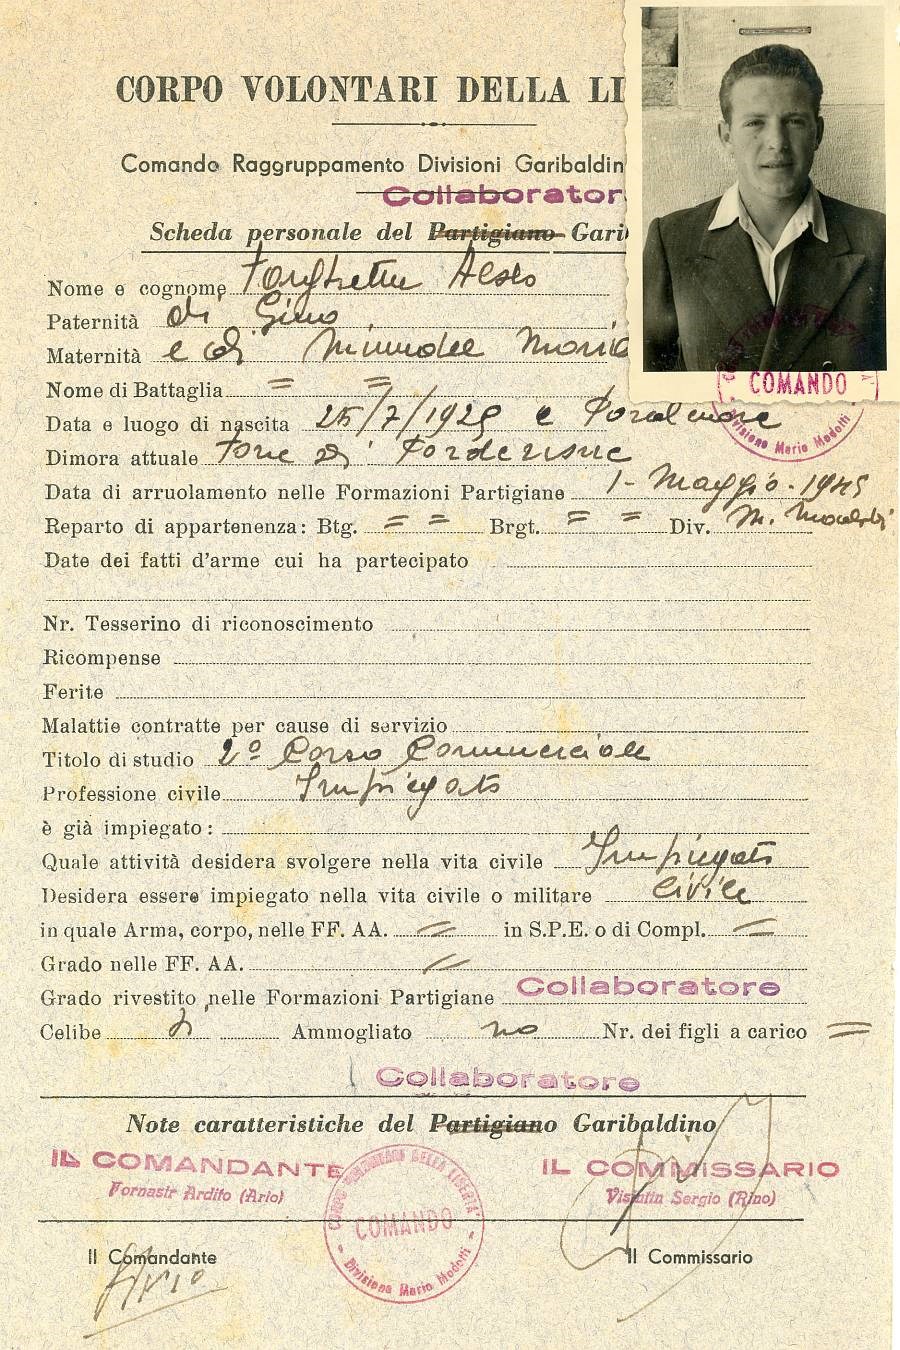 CORPO VOLONTARI DELLA LI
Comando Raggruppamento Divisioni Garibaldin
Collaborator
Scheda personale del Partigiano Gari
Nome e cognome
Paternità di Gino
Maternità e di Maria
Nome di Battaglia = =
Data e luogo di nascita 25/7/1925 e Pordenone
Dimora attuale Torre di Pordenone
Data di arruolamento nelle Formazioni Partigiane 1- Maggio - 1945
Reparto di appartenenza: Btg. = = Brgt. = = Div. M. Modotti
Date dei fatti d'arme cui ha partecipato
Nr. Tesserino di riconoscimento
Ricompense
Ferite
Malattie contratte per cause di servizio
Titolo di studio 2º Corso Commerciale
Professione civile Impiegato
è già impiegato:
Quale attività desidera svolgere nella vita civile Impiegato
Desidera essere impiegato nella vita civile o militare civile
in quale Arma, corpo, nelle FF. AA. = in S.P.E. o di Compl. =
Grado nelle FF. AA. =
Grado rivestito nelle Formazioni Partigiane Collaboratore
Celibe si Ammogliato no Nr. dei figli a carico =
Collaboratore
Note caratteristiche del Partigiano Garibaldino
IL COMANDANTE
Fornasir Ardito (Ario)
IL COMMISSARIO
Visintin Sergio (Rino)
CORPO VOLONTARI DELLA LIBERTA'
COMANDO
Divisione Mario Modotti
Il Comandante
Il Commissario
Ario
COMANDO
Divisione Mario Modotti